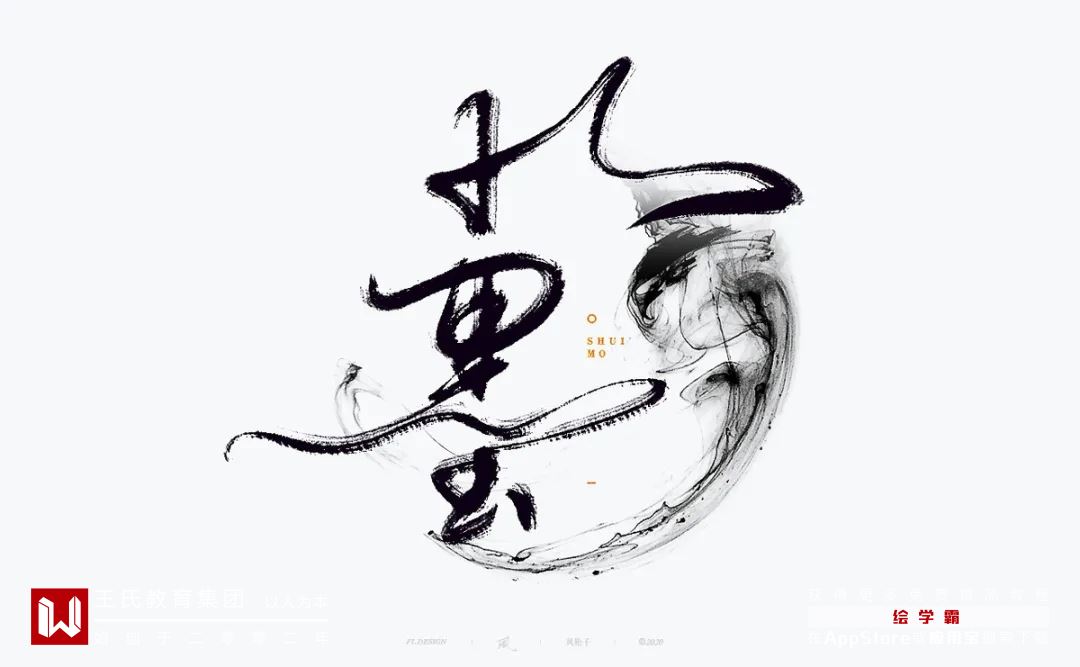 水墨
SHUI
MO
王氏教育集团 以人为本
始创于二零零二年
FL.DESIGN 風 风轮子 ©2020
绘学霸
在AppStore或应用宝搜索下载